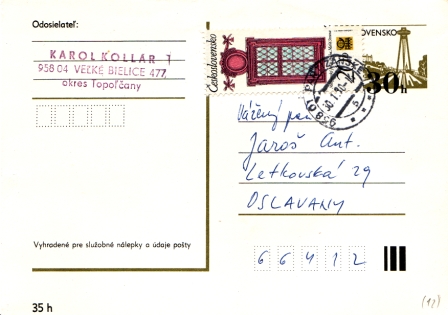 Odosielateľ:
KAROL KOLLAR
958 04 VEĽKÉ BIELICE 477
okres Topoľčany
Československo
30 h
Vážený pan
Jaroš Ant.
Letkovská 29
OSLAVANY
Vyhradené pre služobné nálepky a údaje pošty
6 6 4 1 2
35 h
(12)